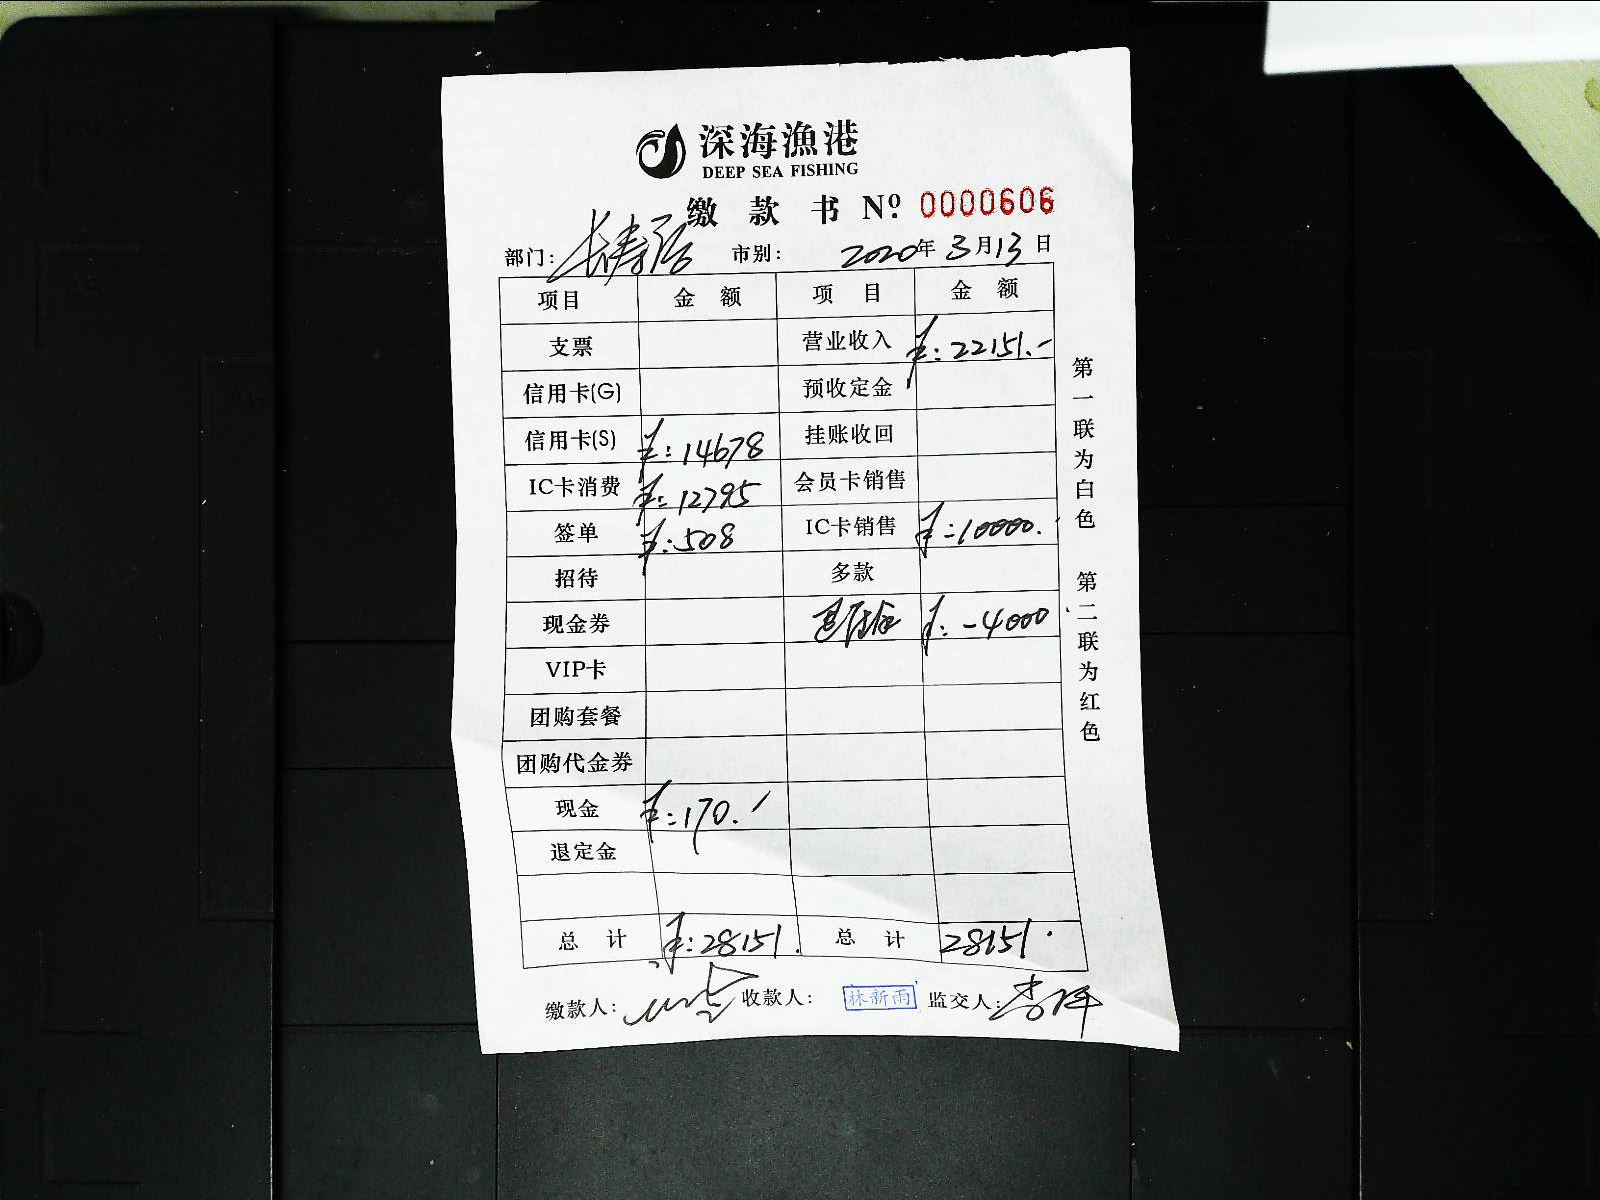 深海漁港
DEEP SEA FISHING
缴款书 Nº: 0000606
部门: 长寿路 市别: 2020年3月13日
项目 金额 项目 金额
支票 营业收入 ¥:22151.-
信用卡(G) 预收定金
信用卡(S) ¥:14678 挂账收回
IC卡消费 ¥:12795 会员卡销售
签单 ¥:508 IC卡销售 ¥:10000.
招待 多款
现金券 ¥:-4000
VIP卡
团购套餐
团购代金券
现金 ¥:170.-
退定金
总计 ¥:28151. 总计 28151.
缴款人: 收款人: 林新雨 监交人:
第一联为白色 第二联为红色